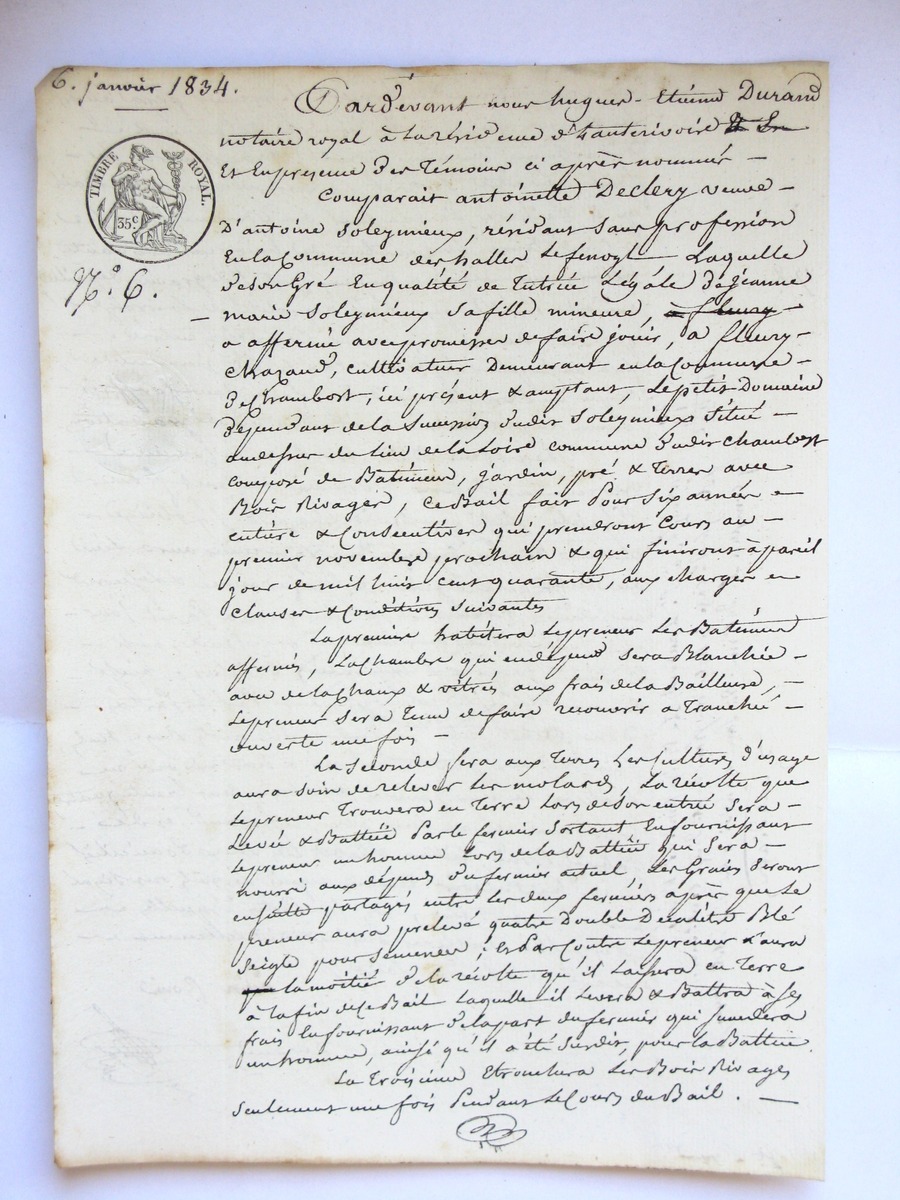 6. janvier 1834.
Pardevant nous hugues-Etienne Durand
notaire royal à la résidence d'hauterivoire
Et En présence des Témoins ci après nommés –
TIMBRE ROYAL.
35c
N.° 6.
Comparait antoinette Declery veuve –
D'antoine Soleymieux, résidant sans profession
En la Commune des halles Le fenoyl – Laquelle
de son Gré En qualité de Tutrice Légale de jeanne
– marie Soleymieux sa fille mineure, à fleury
a affermé avec promesse de faire jouir, à fleury –
Chazaud, cultivateur Demeurant en la Commune –
de Chambost, ici présent & acceptant, Le petit Domaine
dépendant de la Succession dudit Soleymieux Situé –
au dessus du Lieu de la Loire commune dudit Chambost
composé de Batiments, jardin, pré & Terres avec
Bois Rivages, ce Bail fait Pour Six années e
entière & Consécutives qui prendront Cours au –
premier novembre prochain & qui finiront à pareil
jour de mil huit cent quarante, aux charges e
Clauses & Conditions Suivantes
La première habitera Le preneur Les Batiments
affermés, La Chambre qui en dépend sera Blanchie –
avec de la Chaux & vitrés aux frais de la Bailleuse, –
Le preneur Sera Tenu de faire recouvrir a Tranchée –
ouverte une fois –
La Seconde fera aux Terres Les Cultures d'usage
aura soin de relever Les molards, La récolte que
Le preneur Trouvera en Terre Lors de Son entrée Sera –
Levée & Battue Par Le fermier Sortant En fournissant
Le preneur un homme Lors de la Battue qui Sera –
nourri aux dépends du fermier actuel, Les Grains Seront
ensuite partagés entre Les deux fermiers après que Le
preneur aura prélevé quatre Double Décalitre Blé
Seigle pour Semence; Et Par Contre Le preneur L'aura
la moitié de la récolte qu'il Laissera en Terre
à la fin de Ce Bail Laquelle il Levera & Battra à Ses
frais En fournissant de la part du fermier qui Succedera
un homme, ainsi qu'il a été Susdit, pour la Battue.
La Troisième Etronchera Les Bois Rivages
Seulement une fois Pendant Le Cours du Bail. –